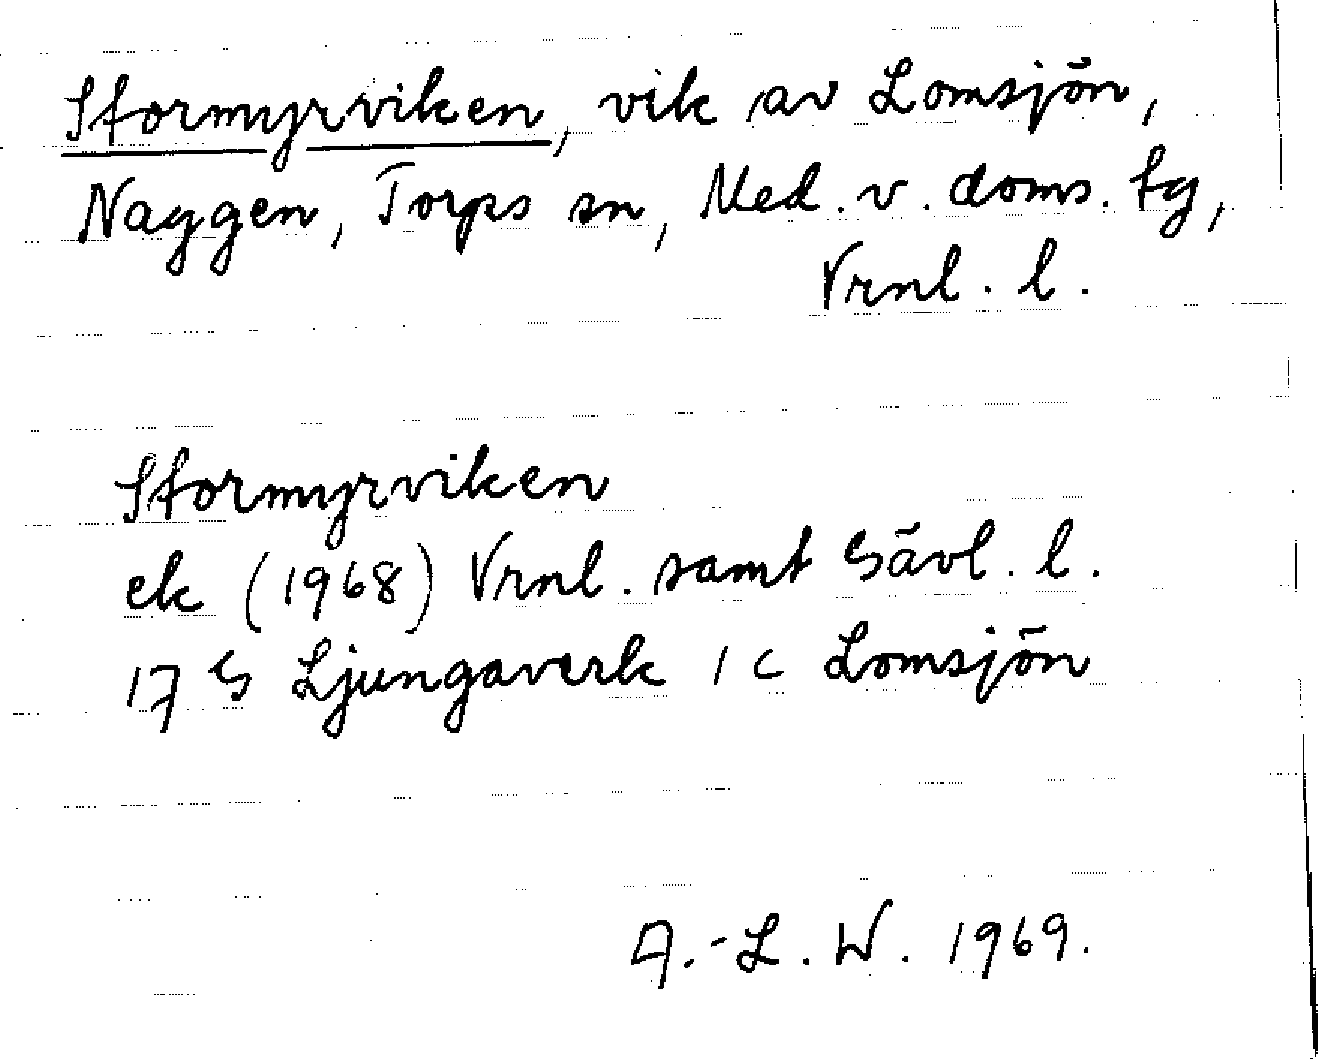 Stormyrviken, vik av Lomsjön,
Naggen, Torps sn, Med. v. doms. tg,
Vrnl. l.
Stormyrviken
ek (1968) Vrnl. samt Gävl. l.
17 G Ljungaverk 1 c Lomsjön
A.-L. W. 1969.